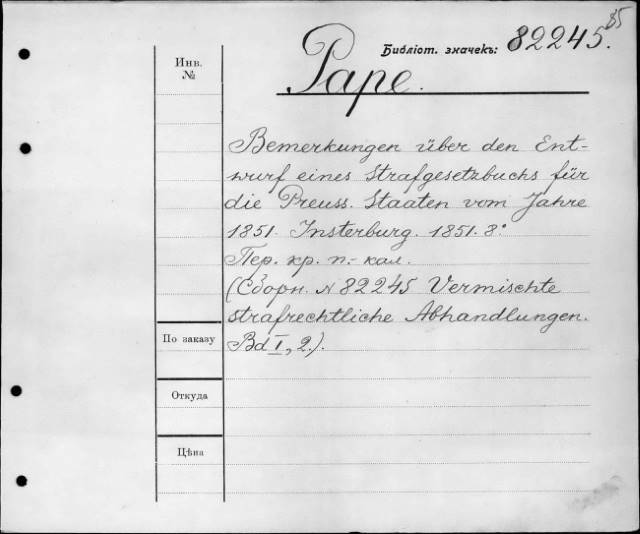 85
Библіот. значекъ: 82245.
Инв.
№
Pape.
Bemerkungen über den Ent-
wurf eines Strafgesetzbuchs für
die Preuss. Staaten vom Jahre
1851. Insterburg. 1851. 8°
Пер. кр. п.-кал.
(Сборн. № 82245 Vermischte
strafrechtliche Abhandlungen.
По заказу
Bd I, 2.).
Откуда
Цѣна